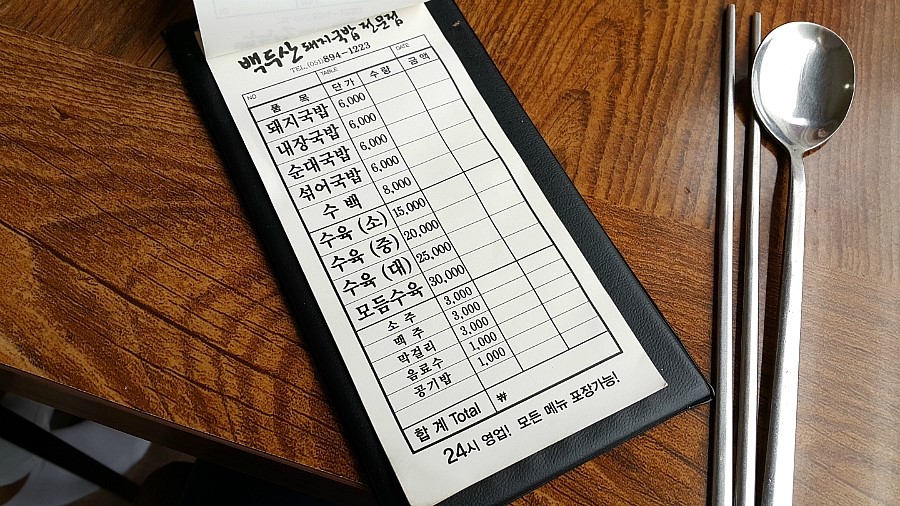 백두산 돼지국밥 전문점
TEL. (051)894-1223
NO TABLE DATE
품 목 단 가 수 량 금 액
돼지국밥 6,000
내장국밥 6,000
순대국밥 6,000
섞어국밥 6,000
수 백 8,000
수육 (소) 15,000
수육 (중) 20,000
수육 (대) 25,000
모듬수육 30,000
소 주 3,000
맥 주 3,000
막걸리 3,000
음료수 1,000
공기밥 1,000
합 계 Total ₩
24시 영업! 모든 메뉴 포장가능!